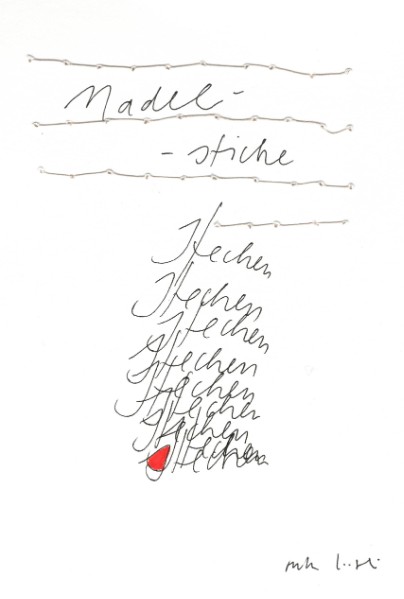 Nadel-
-stiche
Stechen
Stechen
Stechen
Stechen
Stechen
Stechen
Stechen
Stechen